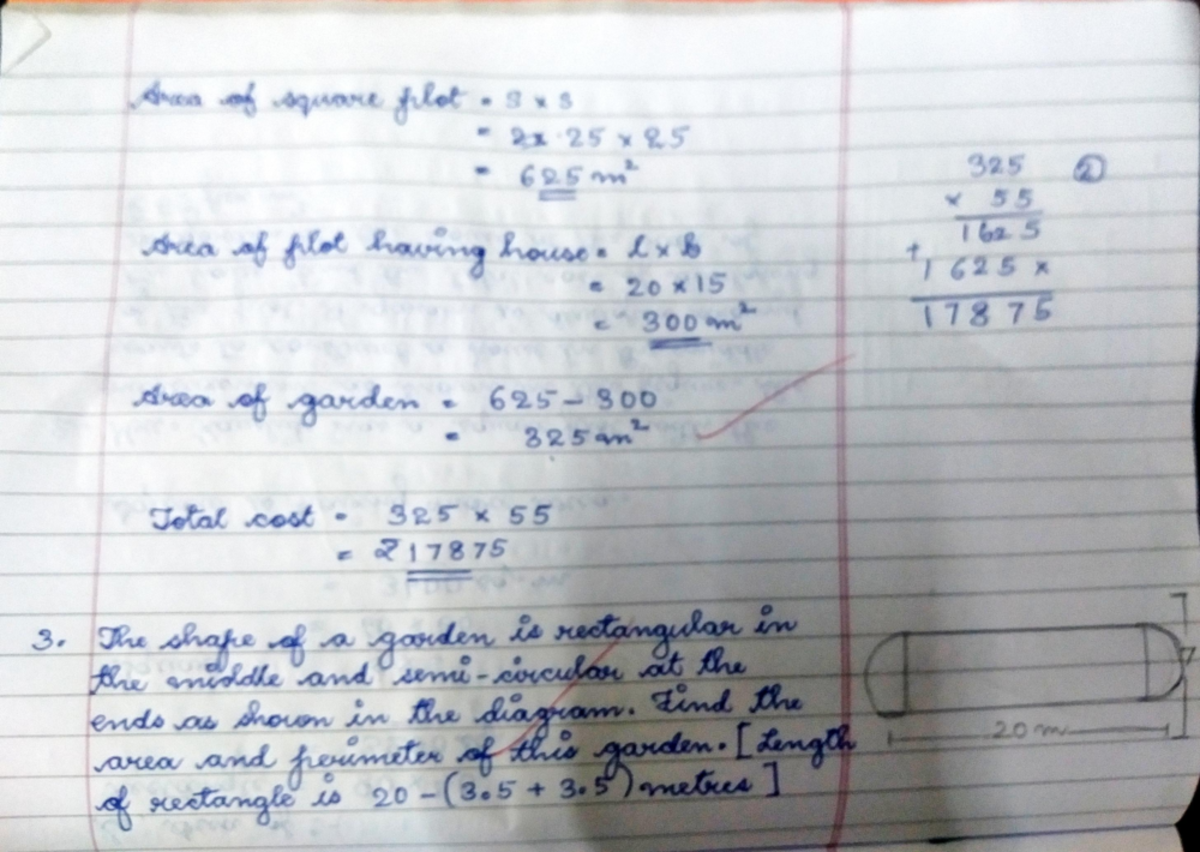 Area of square plot = S x S
= 25 x 25
= 625 m²
Area of plot having house = L x b
= 20 x 15
= 300 m²
Area of garden = 625 - 300
= 325 m²
Total cost = 325 x 55
= ₹17875
325 ②
x 55
1625
+ 1625x
17875
3. The shape of a garden is rectangular in
the middle and semi-circular at the
ends as shown in the diagram. Find the
area and perimeter of this garden. [Length
of rectangle is 20 - (3.5 + 3.5) metres]
7
20 m